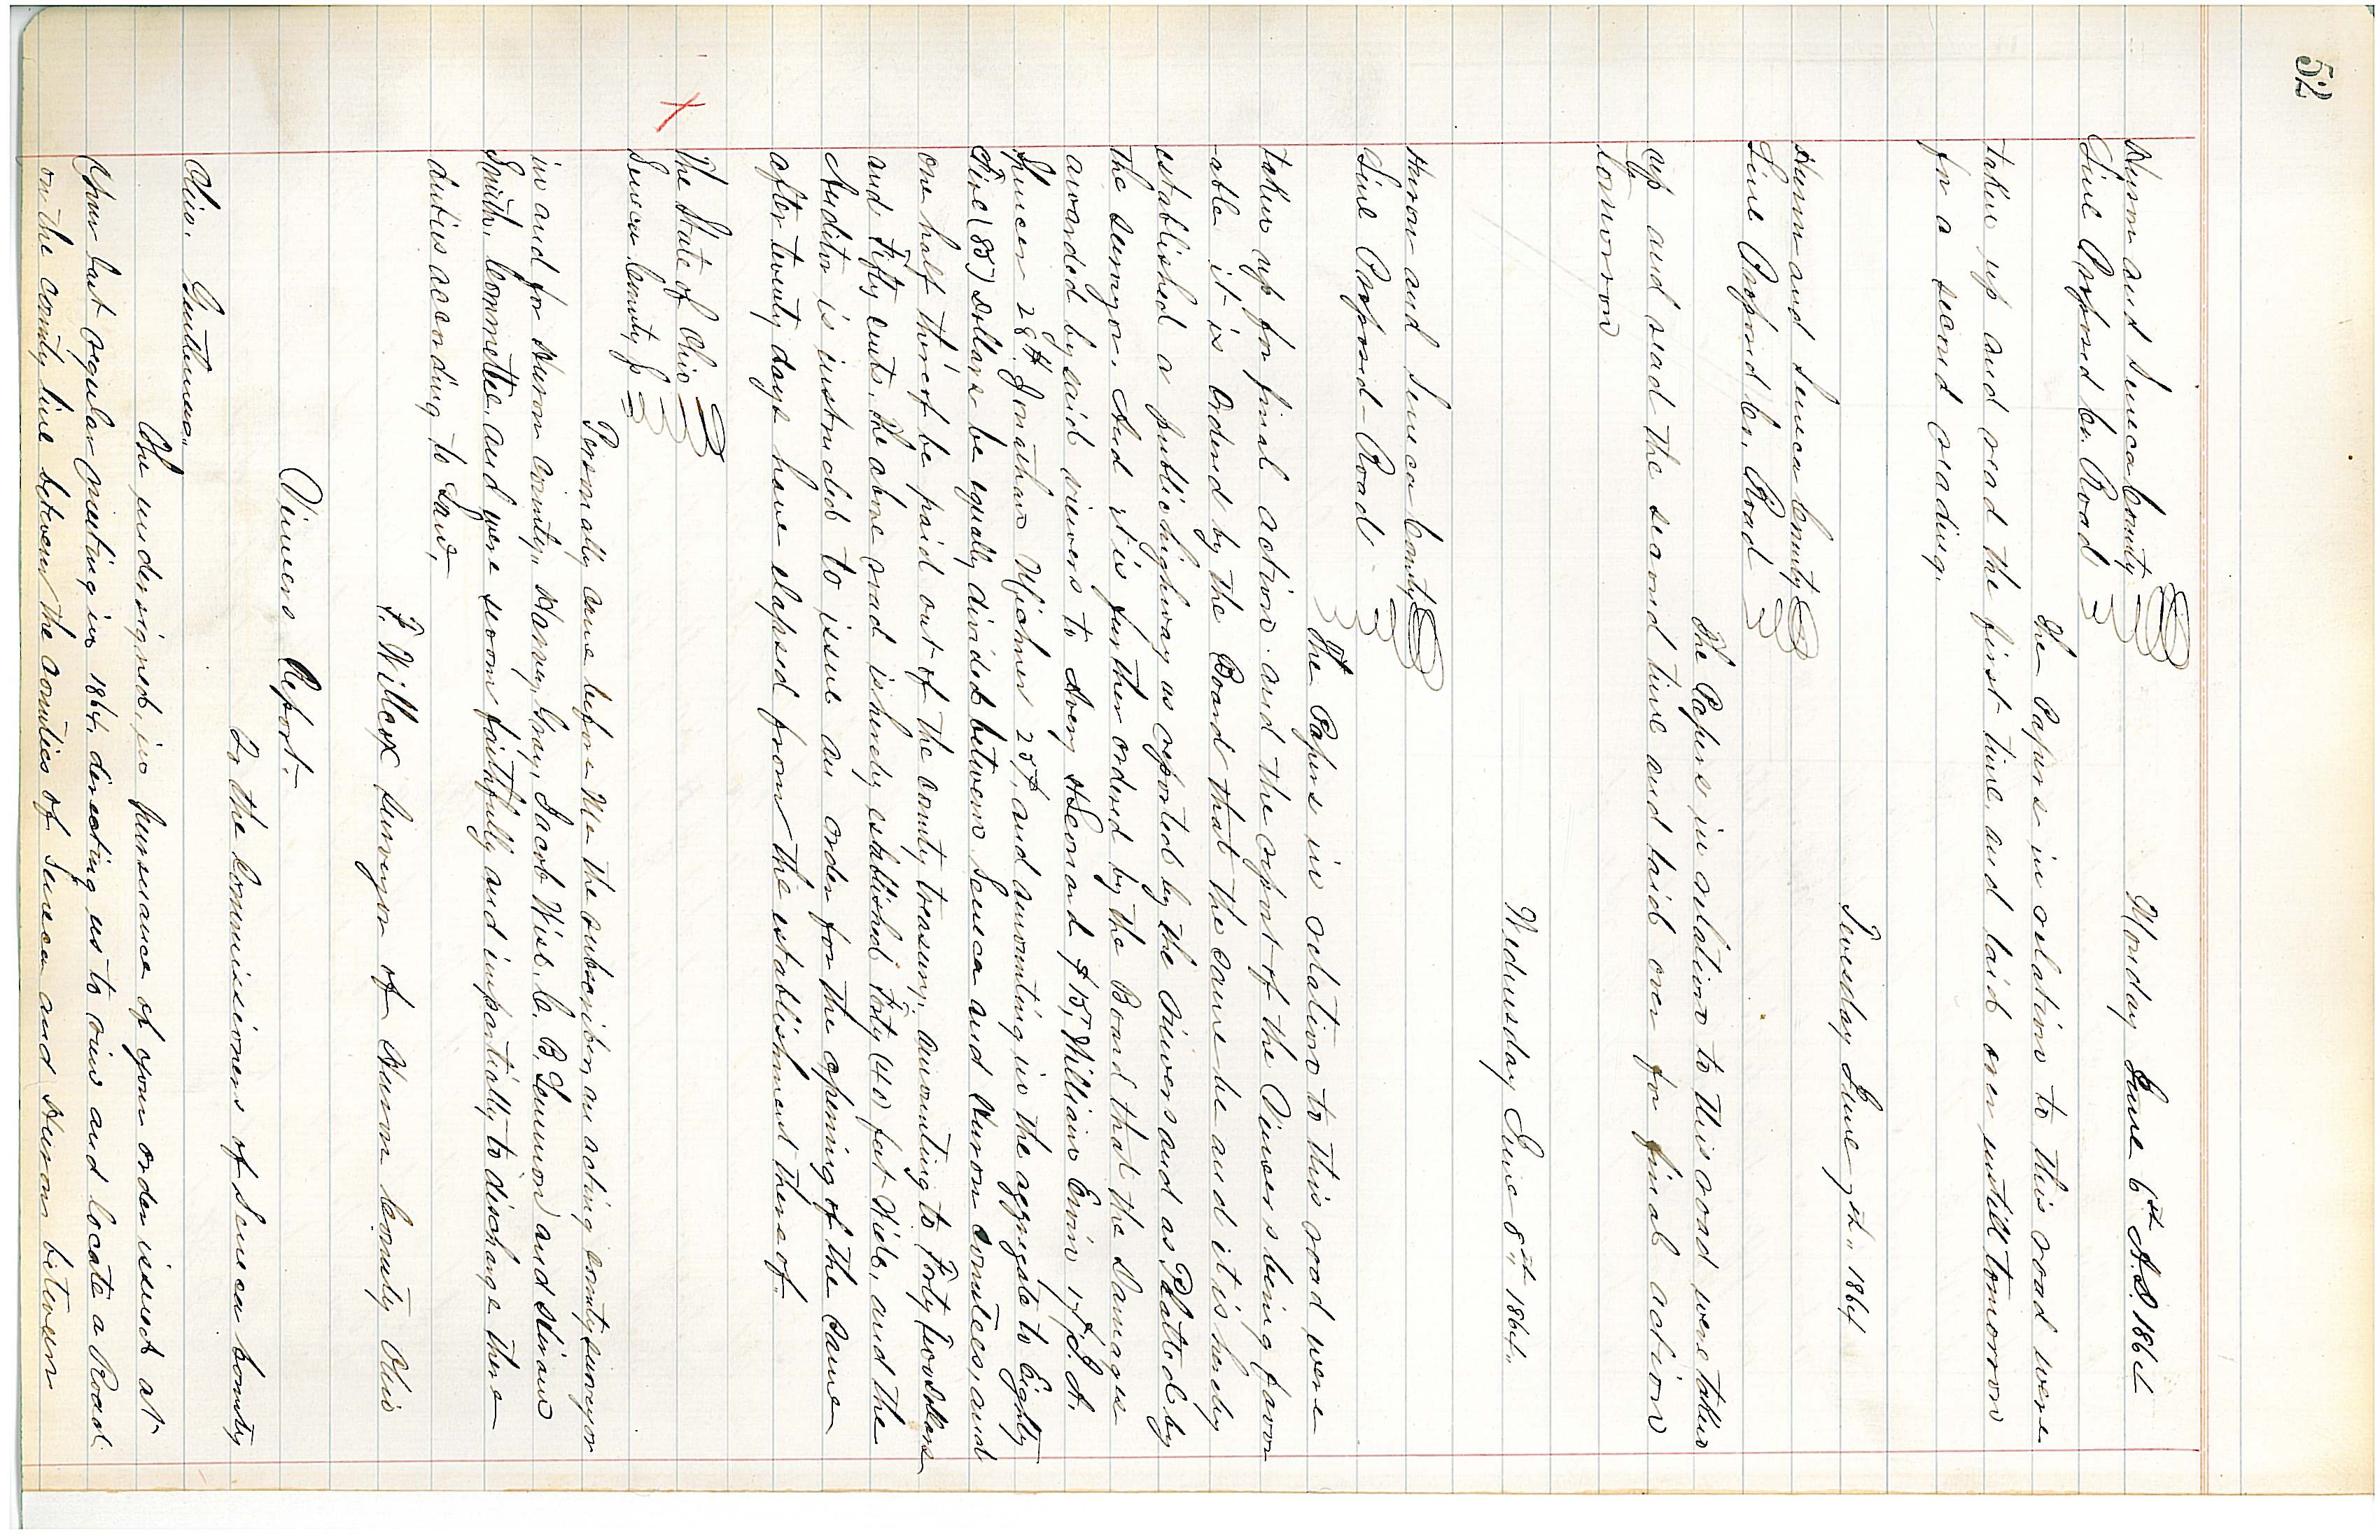 52
Monday June 6th A.D. 1864
Huron and Seneca County
Line Proposed Co. Road
The Papers in relation to this road were
taken up and read the first time and laid over untill tomorrow
for a second reading.
Tuesday June 7th 1864
Huron and Seneca County
Line Proposed Co. Road
The Papers in relation to this road were taken
up and read the second time and laid over for final action
tomorrow
Wednesday June 8th 1864
Huron and Seneca County
Line Proposed Road
The Papers in relation to this road were
taken up for final action and the report of the Viewers being favor
able it is ordered by the Board that the same be and it is hereby
established a public highway as reported by the viewers and as Platted by
the surveyor. And it is further ordered by the Board that the Damages
awarded by said viewers to Avery Leonard $15, William Ervin 17, J. A.
Spencer 28, Jonathan Michner 25, and amounting in the aggregate to Eighty
Five (85) Dollars be equally divided between Seneca and Huron Counties, and
one half thereof be paid out of the county treasury, amounting to Forty Two Dollars
and Fifty cents, the above road is hereby established Forty (40) feet Wide, and the
Auditor is instructed to issue an order for the opening of the same
after twenty days have elapsed from the establishment there of
X
The State of Ohio
Seneca County
Personally came before Me the subscriber, an acting county surveyor
in and for Huron County, Harvey Gray, Jacob Wise, C. B. Lemmon and Hiram
Smith, Committee, and were sworn faithfully and impartially to discharge there
duties according to Law,
F. Willcox Surveyor of Huron County Ohio
Viewers Report.
To the Commissioners of Seneca County
Ohio. Gentlemen.
The undersigned, in pursuance of your order issued at
Your last regular meeting in 1864 directing us to view and locate a Road
on the county line between the counties of Seneca and Huron between